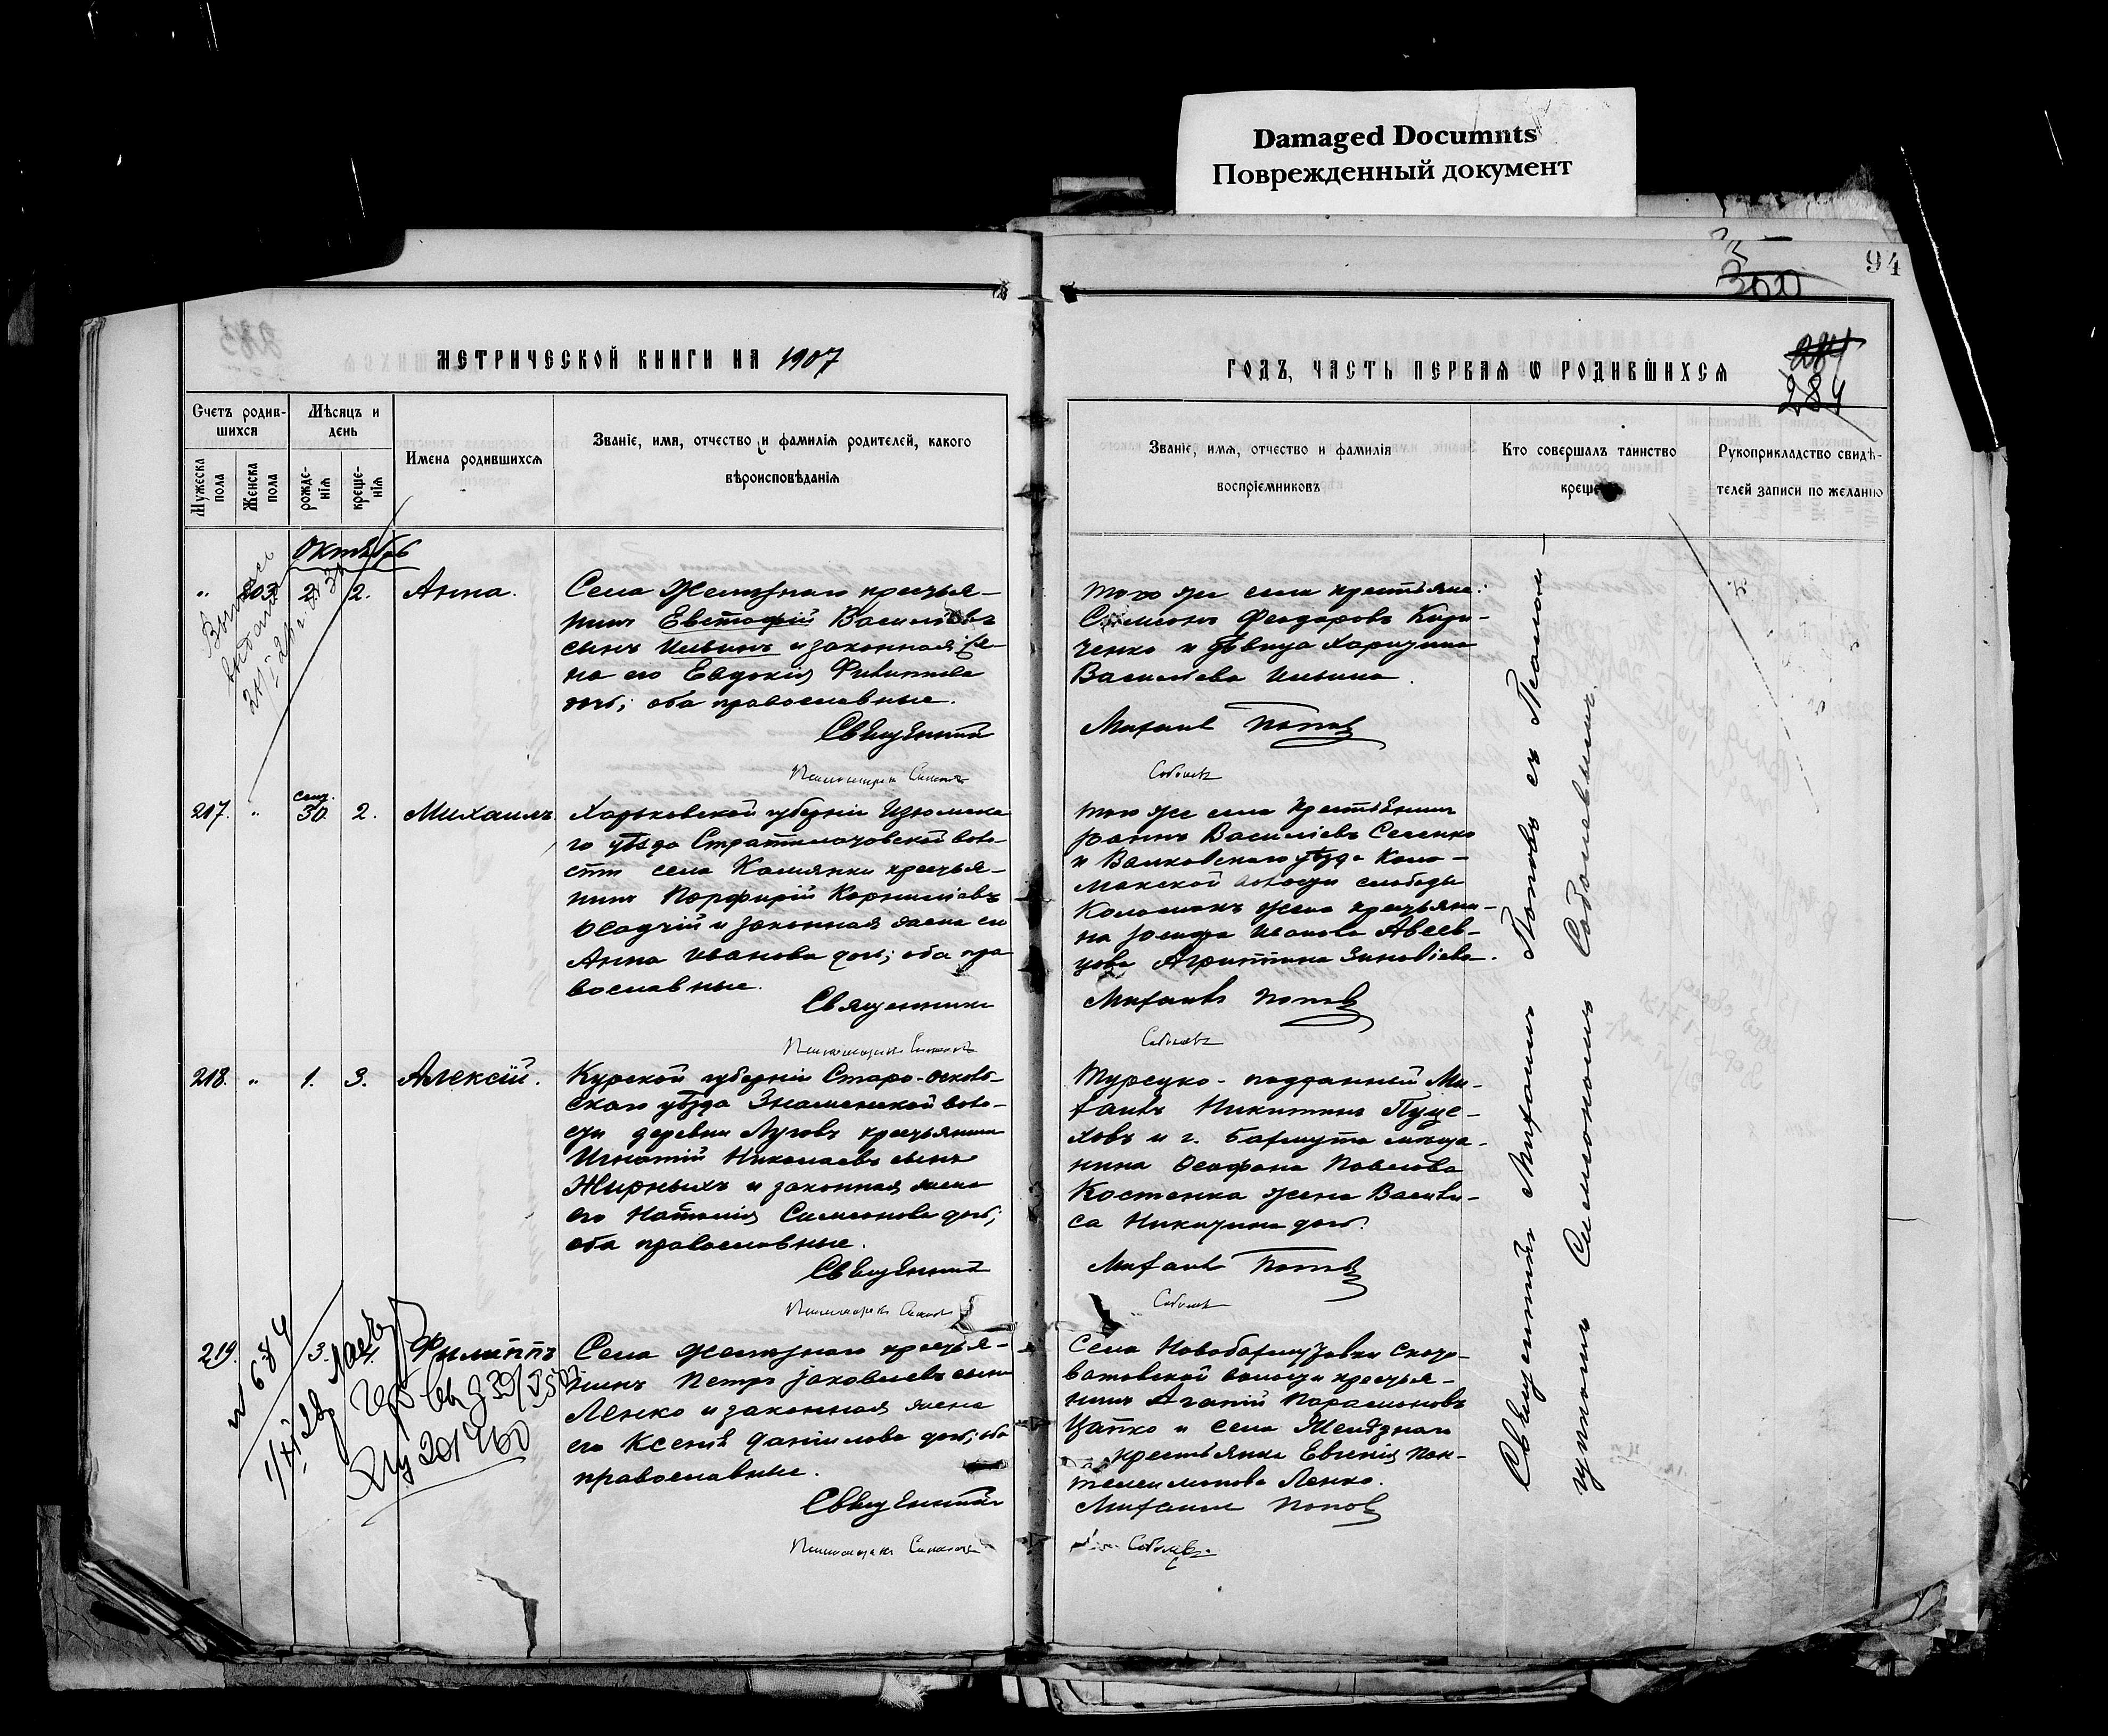 Damaged Documnts
Поврежденный документ
94
МЕТРИЧЕСКОЙ КНИГИ НА 1907
ГОДЪ, ЧАСТЬ ПЕРВАЯ Ѡ РОДИВШИХСЯ
284
284
Счетъ родив-
шихся
Мѣсяцъ и
день
Мужеска
пола
Женска
пола
рожде-
нія
креще-
нія
Имена родившихся
Званіе, имя, отчество и фамилія родителей, какого
вѣроисповѣданія
Званіе, имя, отчество и фамилія
воспріемниковъ
Кто совершалъ таинство
креще
Рукоприкладство свидѣ-
телей записи по желанію
Октябрь
" 203 2 2. Анна.
Села Желѣзнаго кресьья-
нинъ Евстафій Васильевъ
сынъ Ильинъ и законная же-
на его Евдокія Филиппова
дочь; оба православные.
Священникъ
того же села крестьяне:
Симеонъ Феодоровъ Кири-
ченко и дѣвица Харитина
Васильева Ильина.
Михаилъ Поповъ
217. " сент. 30. 2. Михаилъ
Харьковской губерніи Изюмска-
го уѣзда воло-
сти села Камянки кресьья-
нинъ Порфирій Корниліевъ
Осадчій и законная жена его
Анна Иванова дочь; оба пра
вославные.
Священникъ
того же села крестьянинъ
Іоаннъ Василіевъ Селенко
и Валковскаго уѣзда Коло-
макской волости слободы
Коломакъ жена кресьяни-
на Іосифа Иванова Авеев-
цова Агриппина Зиновіева.
Михаилъ Поповъ
218. " 1. 3. Алексій.
Курской губерніи Старо-Осколь-
скаго уѣзда Знаменской воло-
сти деревни Луговъ кресьянинъ
Игнатій Николаевъ сынъ
Жирныхъ и законная жена
его Наталія Симеонова дочь;
оба православные.
Священникъ
Турецко-подданный Ми-
хаилъ Никитинъ
и г. Бахмута мѣща-
нина Феофана Павлова
Костенка жена Васили-
са Никитина дочь.
Михаилъ Поповъ
219. 3. 4. Филиппъ
Села Желѣзнаго кресьья-
нинъ Петръ Іаковлевъ сынъ
Ленко и законная жена
его Ксенія Даніилова дочь; оба
православные.
Священникъ
Села Новобахмутовки Скоро-
ватовской волости кресьья-
нинъ Агапій Парамоновъ
Цапко и села Желѣзнаго
крестьянка Евгенія Пан-
телеимонова Ленко.
Михаилъ Поповъ
Соболевъ
Священникъ Михаилъ Поповъ съ Псалом-
щикомъ Симеономъ Соболевымъ.